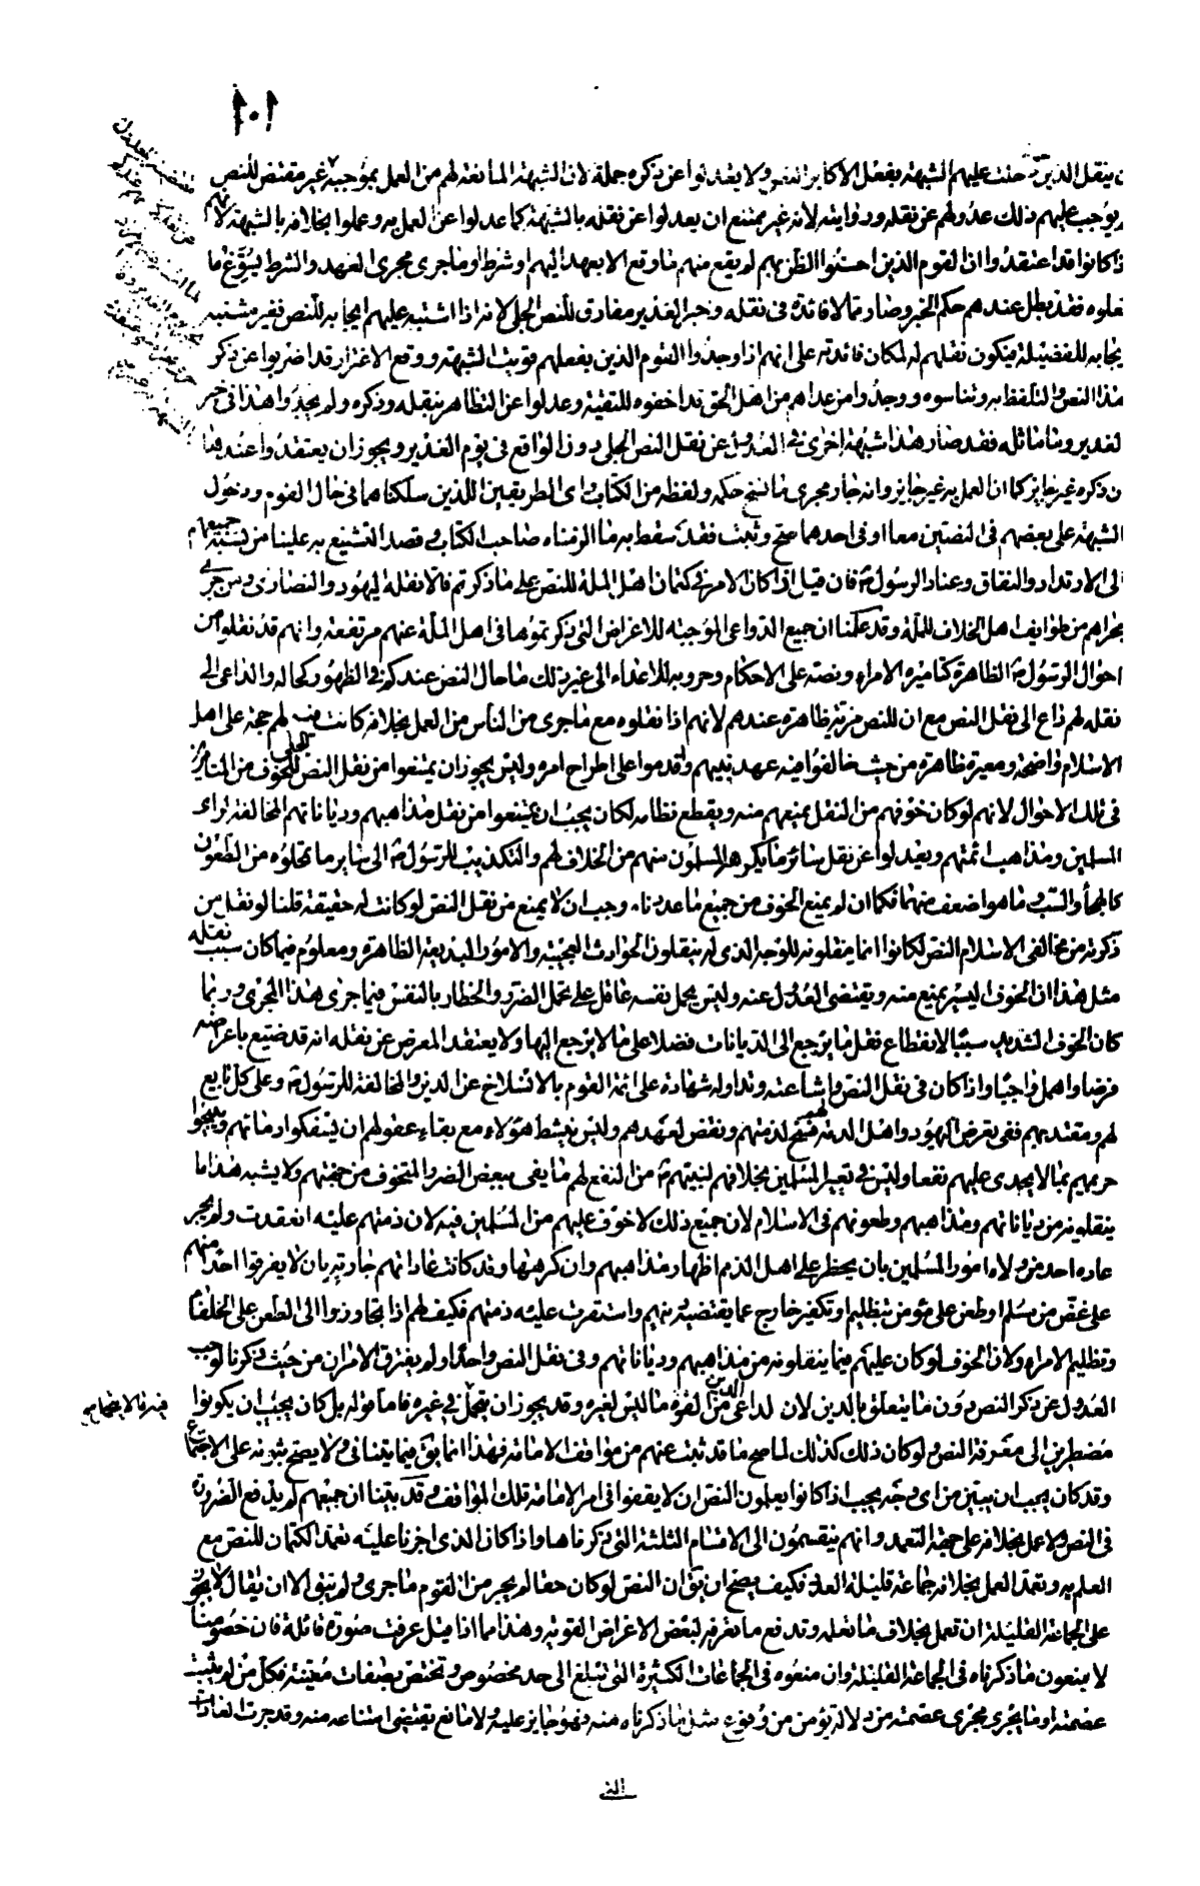 ١٠١
ن ينقل الذين دخلت عليهم الشبهة بفعل الاكابر النص ولا يعدلوا عن ذكره جملة لان الشبهة المانعة لهم من العمل بموجبه غير مقتض للنص
يوجب عليهم ذلك عدولهم عن نقله وروايته لانه غير ممتنع ان يعدلوا عن نقله بالشبهة كما عدلوا عن العمل به وعملوا بخلافه بالشبهة لانهم
ذا كانوا قد اعتقدوا ان القوم الذين احسنوا الظن بهم لم يقع منهم ما وقع الا بعهد اليهم او شرط او ما جرى مجرى العهد والشرط يسوغ ما
فعلوه فقد بطل عندهم حكم الخبر وصار مما لا فائدة فى نقله وخبر الغدير مفارق للنص الجلى لانه اذا اشتبه عليهم ايجابه للنص فغير مشتبه
يجابه للفضيلة فيكون نقلهم له لمكان فائدته على انهم اذا وجدوا القوم الذين بفعلهم قويت الشبهة ووقع الاغترار قد اضربوا عن ذكر
هذا النص والتلفظ به وتناسوه ووجدوا من عداهم من اهل الحق قد اخفوه للتقية وعدلوا عن التظاهر بنقله وذكره ولم يجدوا هذا فى خبر
لغدير وما ماثله فقد صار هذا شبهة اخرى فى العدول عن نقل النص الجلى دون الواقع فى يوم الغدير ويجوز ان يعتقدوا عندها
ن ذكره غير جايز كما ان العمل به غير جايز وانه جار مجرى ما نسخ حكمه ولفظه من الكتاب واى الطريقين اللذين سلكناهما فى حال القوم ودخول
الشبهة على بعضهم فى النصين معا او فى احدهما صح وثبت فقد سقط به ما الزمناه صاحب الكتاب وقصد التشنيع به علينا من نسبة جميعهم
الى الارتداد والنفاق وعناد الرسول فان قيل اذا كان الامر فى كتمان اهل الملة للنص على ما ذكرتم فالا نقله اليهود والنصارى ومن جرى
مجراهم من طوايف اهل الخلاف للملة وقد علمنا ان جميع الدواعى الموجبة للاغراض التى ذكرتموها فى اهل الملة عنهم مرتفعة وانهم قد نقلوا من
احوال الرسول الظاهرة كتاميره الامراء ونصه على الاحكام وحروبه للاعداء الى غير ذلك ما حال النص عندكم فى الظهور كحاله والداعى الى
نقله لهم داع الى نقل النص مع ان للنص مزية ظاهرة عندهم لانهم اذا نقلوه مع ما جرى من الناس من العمل بخلافه كانت فيه لهم حجة على اهل
الاسلام واضحة ومعيرة ظاهرة من حيث خالفوا فيه عهد نبيهم واقدموا على اطراح امره وليس يجوز ان يمتنعوا من نقل النص الجلى للخوف من الناس
فى تلك الاحوال لانهم لو كان خوفهم من النقل يمنعهم منه ويقطع نظامه لكان يجب ان يمتنعوا من نقل مذاهبهم ودياناتهم المخالفة لراى
المسلمين ومذاهب ائمتهم ويعدلوا عن نقل سائر ما يكرهه المسلمون منهم من الخلاف لهم والتكذيب للرسول الى ساير ما نحلوه من الطعون
كالهجاء والسب وما هو اضعف منهما فكما ان لم يمنع الخوف من جميع ما عددناه وجب ان لا يمنع من نقل النص لو كانت له حقيقة قلنا لو نقل من
ذكرته من مخالفى الاسلام النص لكانوا انما ينقلونه للوجه الذى له ينقلون الحوادث العجيبة والامور البديعة الظاهرة ومعلوم فيما كان سبب نقله
مثل هذا ان الخوف اليسير يمنع منه ويقتضى العدول عنه وليس يحمل نفسه عاقل على تحمل الضرر والخطار بالنفس فيما جرى هذا المجرى وربما
كان الخوف الشديد سببا لانقطاع نقل ما يرجع الى الديانات فضلا على ما لا يرجع اليها ولا يعتقد المعرض عن نقله انه قد ضيع باعراضه
فرضا واهمل واجبا واذا كان فى نقل النص واشاعته وتداوله شهادة على ائمة القوم بالانسلاخ عن الدين والمخالفة للرسول وعلى كل تابع
لهم ومقتد بهم ففى تعرض اليهود واهل الذمة له فسخ لذمتهم ونقض لعهدهم وليس ينشط هؤلاء مع بقاء عقولهم ان يسفكوا دماءهم ويبيحوا
حريمهم بما لا يجدى عليهم نفعا وليس فى تعيير المسلمين بخلافهم لنبيهم من النفع لهم ما يفى ببعض الضرر المتخوف من جهتهم ولا يشبه هذا ما
ينقلونه من دياناتهم ومذاهبهم وطعونهم فى الاسلام لان جميع ذلك لا خوف عليهم من المسلمين فيه لان ذمتهم عليه انعقدت ولم يجر
عادة احد من ولاة امور المسلمين بان يحظر على اهل الذمم اظهار مذاهبهم وان كرهها وقد كانت عاداتهم جارية بان لا يفرقوا احدا منهم
على غض من مسلم او طعن على مؤمن بتظليم او تكفير خارج عما يقتضيه دينهم واستقرت عليه ذمتهم فكيف لهم اذا تجاوزوا الى الطعن على الخلفاء
وتظليم الامراء ولان الخوف لو كان عليهم فيما ينقلونه من مذاهبهم ودياناتهم وفى نقل النص واحدا ولم يفترق الامران من حيث ذكرنا لوجب
العدول عن ذكر النص دون ما يتعلق بالدين لان لداعى الدين من القوة ما ليس لغيره وقد يجوز ان يتحمل فيه غيره فاما قوله بل كان يجب ان يكونوا
مضطرين الى معرفة النص ولو كان ذلك كذلك لما صح ما قد ثبت عنهم من مواقف الامامة فهذا انما يؤثر فيما يتنافى ولا يصح ثبوته على الاجتماع
وقد كان يجب ان يبين من اى وجه يجب اذا كانوا يعلمون النص ان لا يقفوا فى امر الامامة تلك المواقف وقد بينا ان جميعهم لم يدفع الضرورة
فى النص ولا عمل بخلافه على جهة التعمد وانهم ينقسمون الى الاقسام الثلثة التى ذكرناها واذا كان الذى اجزنا عليه تعمد الكتمان للنص مع
العلم به وتعمد العمل بخلافه جماعة قليلة العدد فكيف يصح ان يق ان النص لو كان حقا لم يجر من القوم ما جرى ولم يبق الا ان يقال لا يجوز
على الجماعة القليلة ان تعمل بخلاف ما تعلمه وتدفع ما تعرفه لبعض الاغراض القوية وهذا مما اذا قيل عرفت صورة قائله فان خصومنا
لا يمنعون ما ذكرناه فى الجماعة القليلة وان منعوه فى الجماعات الكثيرة التى تبلغ الى حد مخصوص وتختص بصفات معينة فكل من لم يثبت
عصمته او ما يجرى مجرى عصمته من دلالة تؤمن من وقوع مثل ما ذكرناه منه فهو جايز عليه ولا مانع يقتضى امتناعه منه وقد جرت العادات